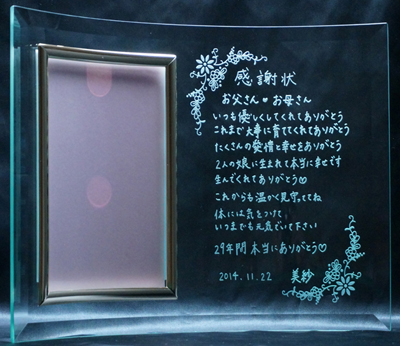 感謝状
お父さん♥お母さん
いつも優しくしてくれてありがとう
これまで大事に育ててくれてありがとう
たくさんの愛情と幸せをありがとう
2人の娘に生まれて本当に幸せです
生んでくれてありがとう♡
これからも温かく見守っててね
体には気をつけて
いつまでも元気でいて下さい
29年間本当にありがとう♡
2014.11.22 美紗